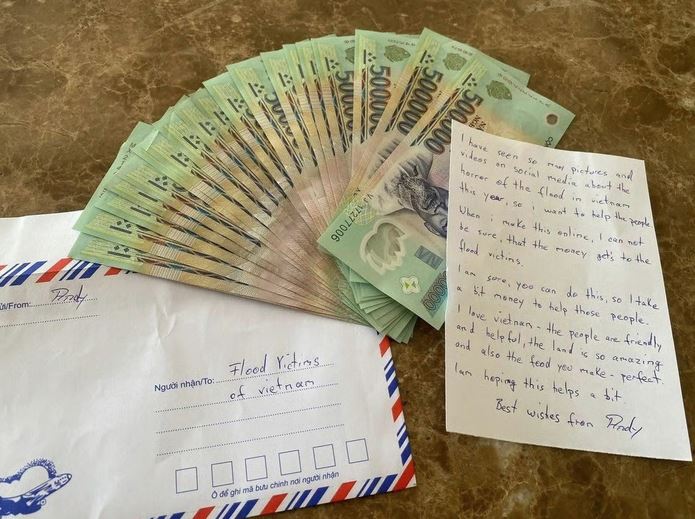 500000
500000
500000
500000
17277006
I have seen so many pictures and
videos on social media about the
horror of the flood in vietnam
this year, so i want to help the people.
When i make this online, I can not
be sure, that the money get's to the
flood victims.
I am sure, you can do this, so I take
a bit money to help those people.
I love vietnam - the people are friendly
and helpful, the land is so amazing
and also the food you make - perfect.
I am hoping this helps a bit
Best wishes from Andy
From: Andy
Người nhận/To: Flood Victims
of vietnam
Ô để ghi mã bưu chính nơi người nhận